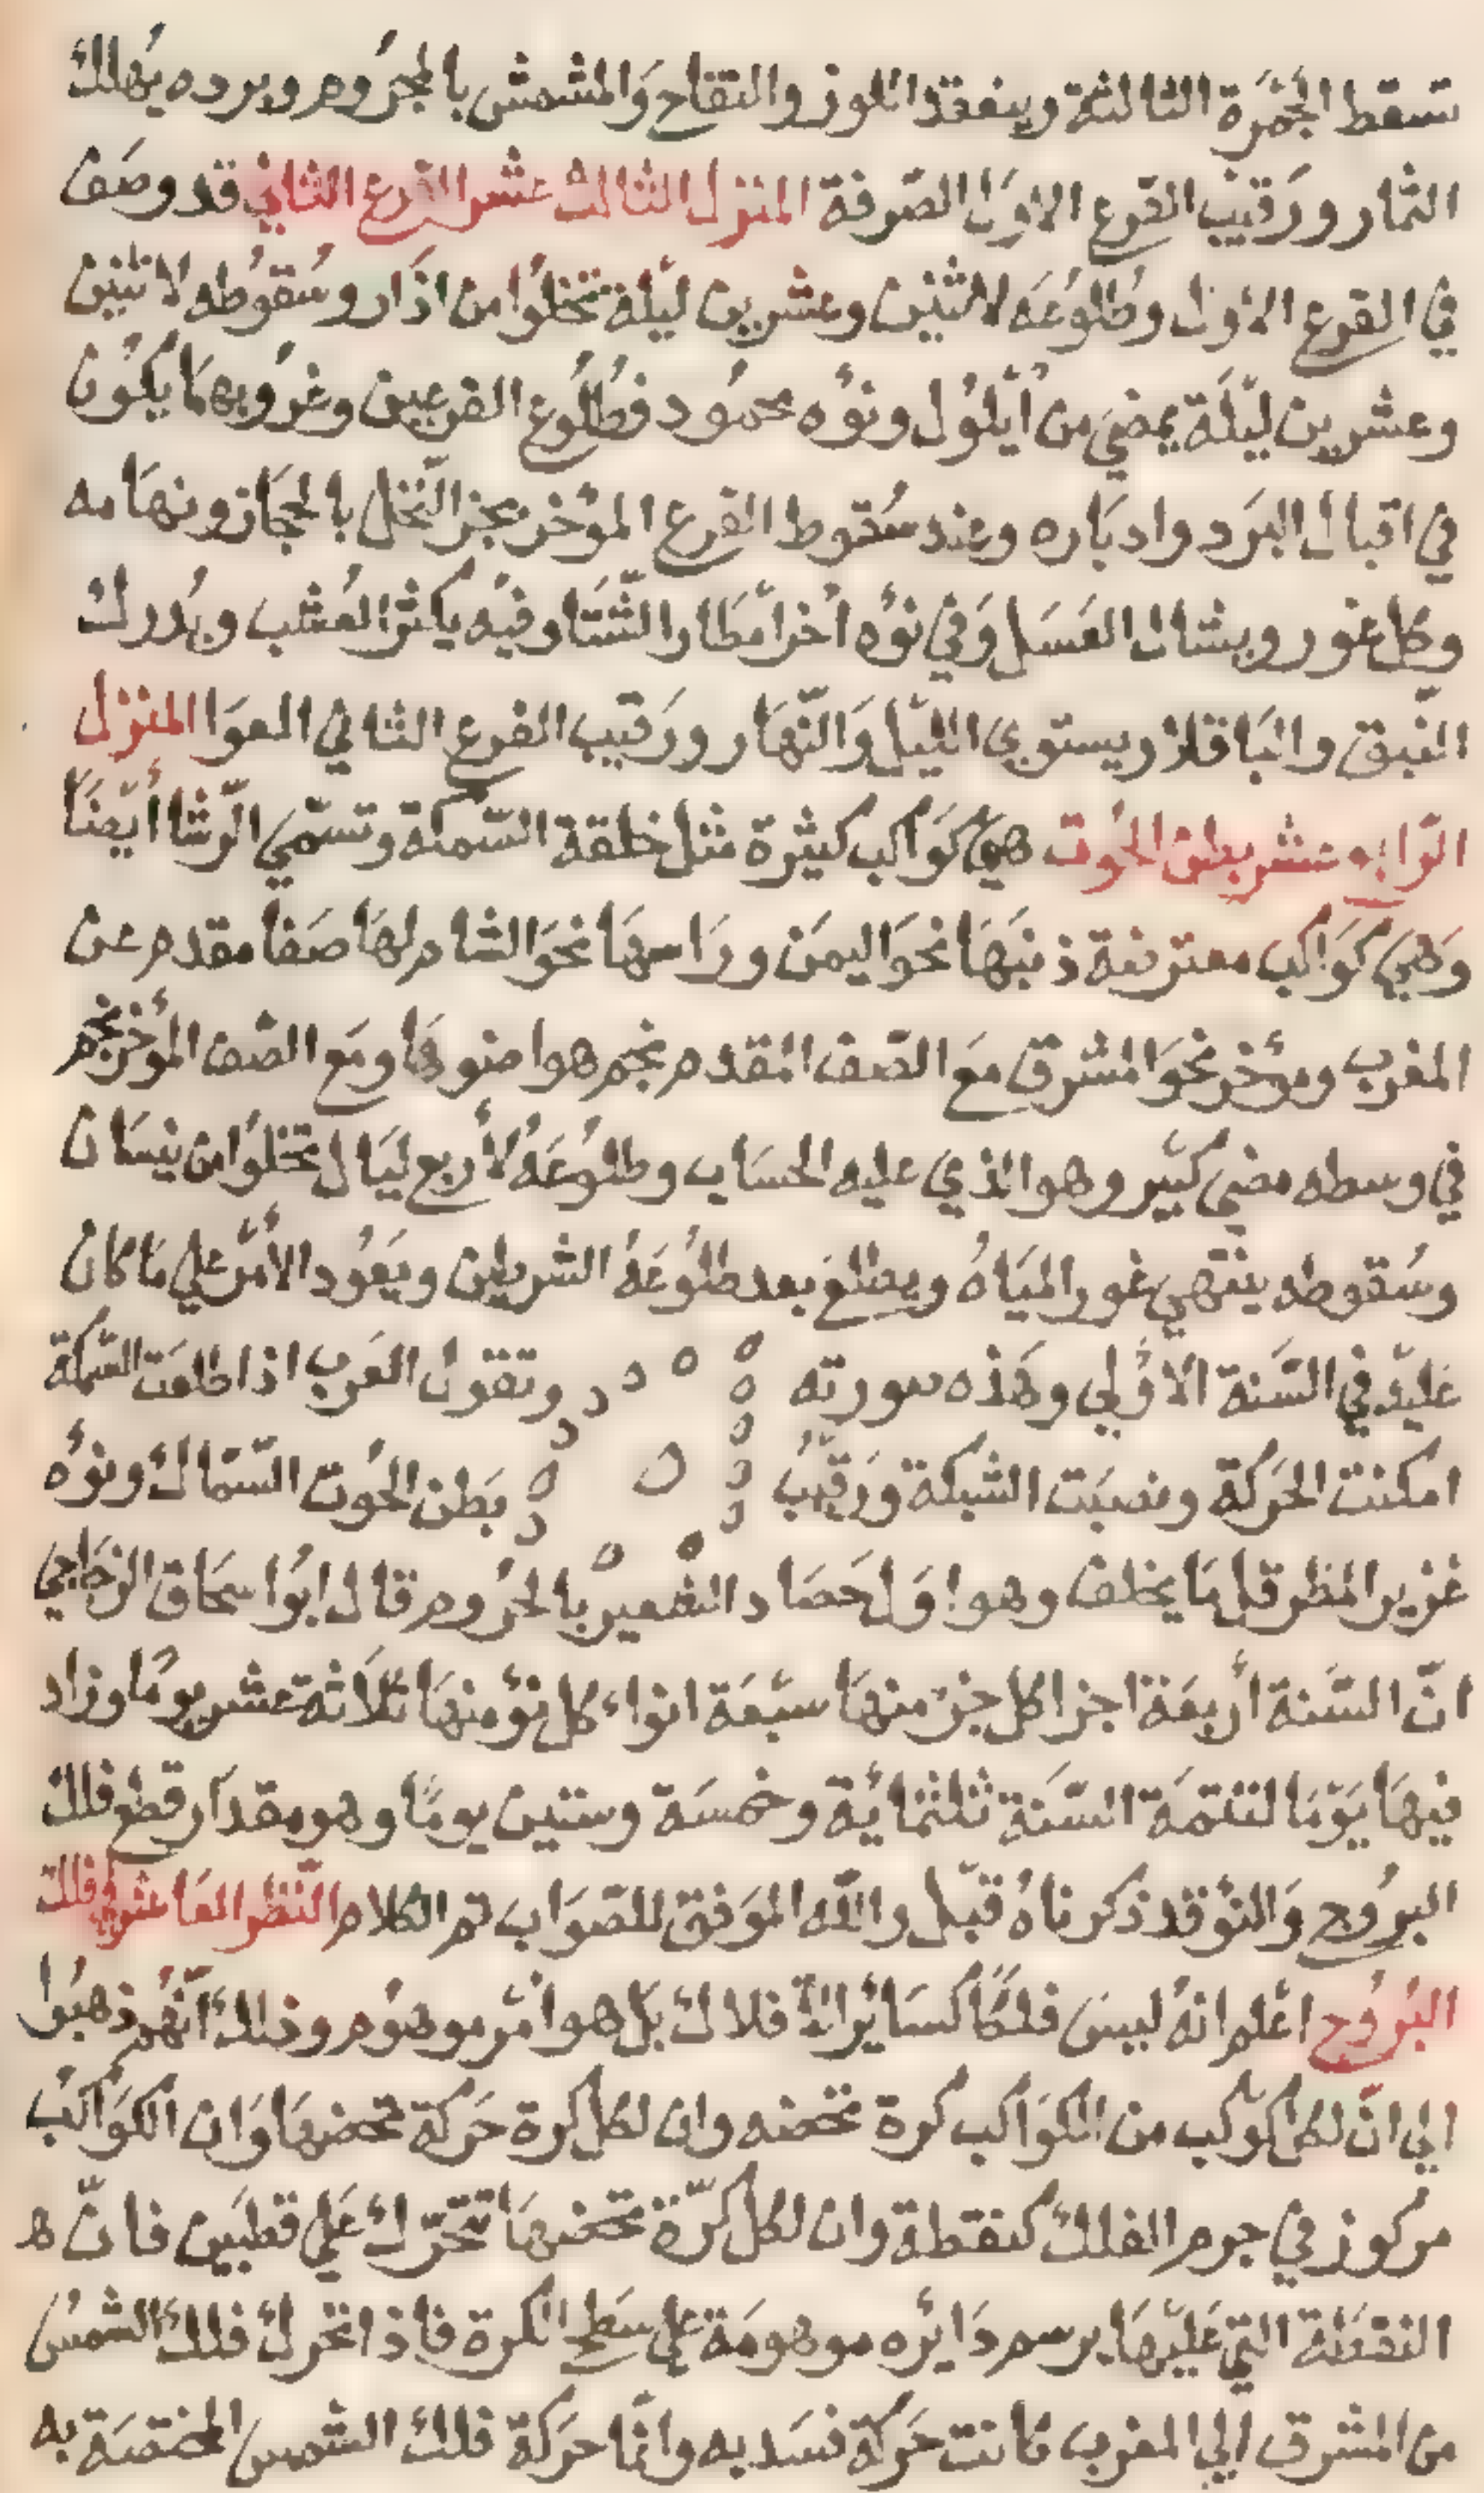 تسقط الجَمَرة الثالثة وينعقد اللوز والتفاح وَالمشمش بالجرُوم وبرده يُهلك
الثمار ورَقيب الفرع الاول الصّرفة المنزل الثالث عشر الفرع الثاني قد وصَف
في الفرع الاول وطُلوُعَه لاثنين وعشرين ليّلة تخلوا من اذَار وسُقوُطه لاثنين
وعشرين ليّلَة يمضي من أيلوُل ونوُه محموُد فطُلُوع الفرعين وغرُوبهمَا يكوُن
في اقبال البَرَد وادبَاره وعند سُقوط الفرع المؤخر يجز النّخل بالحجَاز وتهَامه
وكل غور ويشتار العَسَل وَفي نوُه اخر امَطَار الشتَا وفيه يكثر العُشب ويُدرك
النّبق والبَاقلا ويستوي الليّل وَالنّهَار ورَقيب الفرع الثاني العوَا المنزل
الرّابع عشر بطن الحُوت هي كوَاكب كثيرة مثل خلقة السّمكة وتسمّي الرّشا أيضًا
وَهي كوَاكب معترضة ذنبَهَا نحوَ اليمَن ورَاسهَا نحوَ الشام لهَا صَفا مقدم عن
المغرب ومؤخر نحوَ المشرق مَع الصّف المقدم نجم هوا ضوهَا ومَع الصّف المؤخر نجم
في وسطه مضي كبّير وهوا الذي عليه الحسَاب وطلوُعَهُ لأربع ليَال تخلوُا من نيسَان
وسُقوطه ينتهي غور الميَاهُ ويطلع بعد طلوُعَهُ الشرطين ويَعُود الأمّر علي مَا كان
عَليّه في السّنة الاوُلي وهَذه سورته وتقول العَرب اذا طلعَت السّمكة
امكنت الحَركة ونصبَت الشبكة ورَقيبُ بَطن الحُوت السّمَاك ونوُه
غزير المطر قل مَا يخلف وهوا وَل حَصَاد الشعير بالجرُوم قال ابوُ اسحَاق الزجاجي
انّ السّنة أربعَة اجزا كل جزء منهَا سبّعَة انواء كل نوء منهَا ثلاَثة عشر يومًا وزاد
فيهَا يَومَا لتتمَة السّنَة ثلثمايَة وخمسَة وستين يومًا وهو مقدَار قطع فلك
البرُوج وَالنوُ قد ذكرناهُ قبّل والله الموَفق للصّوَاب تم الكلام النّظر العَاشر في فلك
البُرُوج اعْلم انهُ ليسَ فلكًا كسَائر الاّفلاك بَل هوا امْر موهوُم وذلك انّهُم ذهبوُا
الي انّ لكل كوّكب من الكوَاكب كرة تخصه وان لكل كرة حَركة تخصهَا وَان الكوَاكب
مركوز في جرم الفلك كنقطة وان لكل كرّة تخصهَا تتحَرّك عَلي قطبَين فانّ ه
النقطَة التي عَليّهَا يرسم دَايره موهومَة علي سَطح الكرة فاذا تحرك فلك الشمس
من المشرق الي المغرب كانت حَركة قسَديه وانّمَا حَركة فلك الشمس المختصَة به